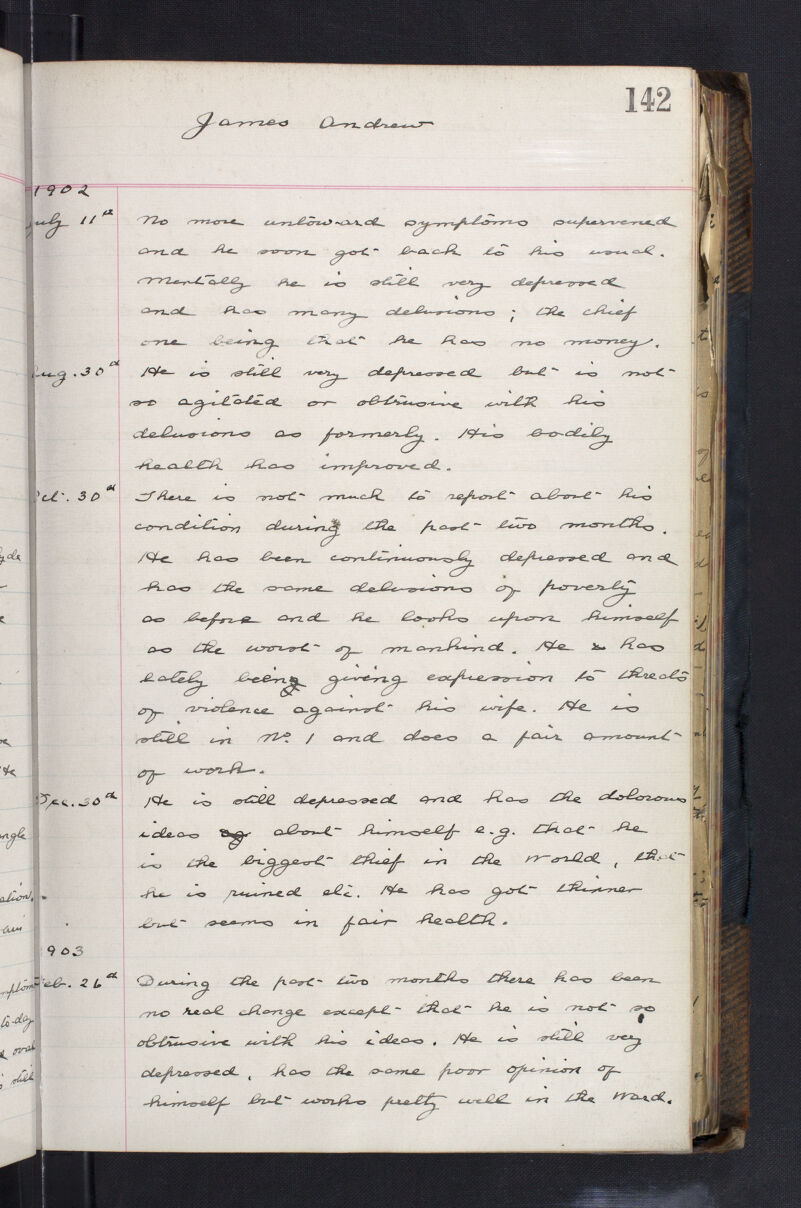 142
James Andrew
1902
July 11th No more untoward symptoms supervened
and he soon got back to his usual.
Mentally he is still very depressed
and has many delusions; the chief
one being that he has no money.
Aug. 30th He is still very depressed but is not
so agitated or obtrusive with his
delusions as formerly. His bodily
health has improved.
Oct. 30th There is not much to report about his
condition during the past two months.
He has been continuously depressed and
has the same delusions of poverty
as before and he looks upon himself
as the worst of mankind. He has
lately being giving expression to threats
of violence against his wife. He is
still in No. 1 and does a fair amount
of work.
Dec. 30th He is still depressed and has the dolorous
ideas about himself e.g. that he
is the biggest thief in the world, that
he is ruined etc. He has got thinner
but seems in fair health.
1903
Feb. 26th During the past two months there has been
no real change except that he is not so
obtrusive with his ideas. He is still very
depressed, has the same poor opinion of
himself but works pretty well in the Ward.